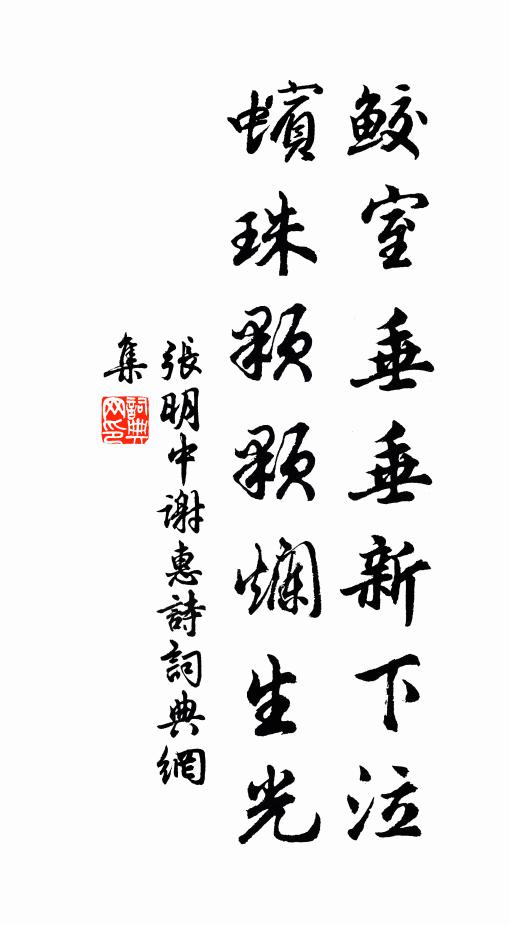 鮫室垂垂新下泣
蠙珠顆顆爛生光
張明中謝惠詩詞典網
集
詞典
网印